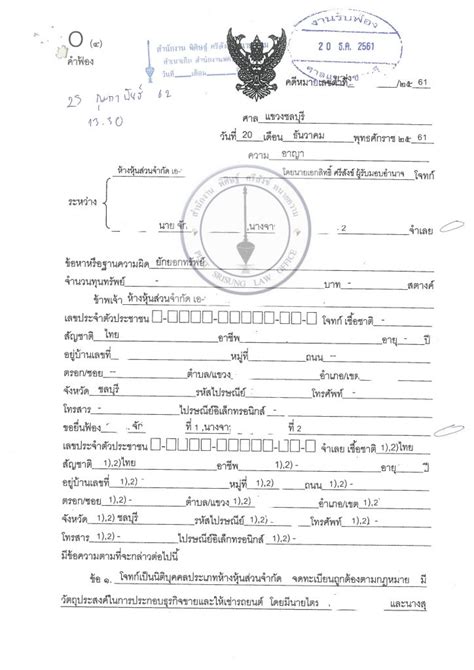 ๐ (๔)
คำฟ้อง
สำนักงาน พิศิษฐ์ ศรีสังข์
วันที่
งานรับฟ้อง
20 ธ.ค. 2561
ศาลแขวง
คดีหมายเลขดำที่ /๒๕ 61
25 กุมภาพันธ์ 62
13.30
ศาล แขวงชลบุรี
วันที่ 20 เดือน ธันวาคม พุทธศักราช ๒๕ 61
ความ อาญา
ห้างหุ้นส่วนจำกัด เอ- โดยนายเอกสิทธิ์ ศรีสังข์ ผู้รับมอบอำนาจ โจทก์
ระหว่าง
นาย จัก ,นางจา 2 จำเลย
สำนักงาน พิศิษฐ์ ศรีสังข์ ทนายความ
SRISUNG LAW OFFICE
ข้อหาหรือฐานความผิด ยักยอกทรัพย์
จำนวนทุนทรัพย์ - บาท - สตางค์
ข้าพเจ้า ห้างหุ้นส่วนจำกัด เอ-
เลขประจำตัวประชาชน โจทก์ เชื้อชาติ -
สัญชาติ ไทย อาชีพ อายุ - ปี
อยู่บ้านเลขที่ หมู่ที่ ถนน --
ตรอก/ซอย -- ตำบล/แขวง อำเภอ/เขต
จังหวัด ชลบุรี รหัสไปรษณีย์ โทรศัพท์ -
โทรสาร - ไปรษณีย์อิเล็กทรอนิกส์ -
ขอยื่นฟ้อง จัก ที่ 1 ,นางจา ที่ 2
เลขประจำตัวประชาชน จำเลย เชื้อชาติ 1),2)ไทย
สัญชาติ 1),2)ไทย อาชีพ 1),2) - อายุ ปี
อยู่บ้านเลขที่ 1),2) หมู่ที่ 1),2) ถนน 1),2) -
ตรอก/ซอย 1),2) - ตำบล/แขวง 1),2) อำเภอ/เขต 1),2
จังหวัด 1),2) ชลบุรี รหัสไปรษณีย์ 1),2) โทรศัพท์ 1),2) -
โทรสาร 1),2) - ไปรษณีย์อิเล็กทรอนิกส์ 1),2) -
มีข้อความตามที่จะกล่าวต่อไปนี้
ข้อ ๑. โจทก์เป็นนิติบุคคลประเภทห้างหุ้นส่วนจำกัด จดทะเบียนถูกต้องตามกฎหมาย มี
วัตถุประสงค์ในการประกอบธุรกิจขายและให้เช่ารถยนต์ โดยมีนายไตร และนางสุ